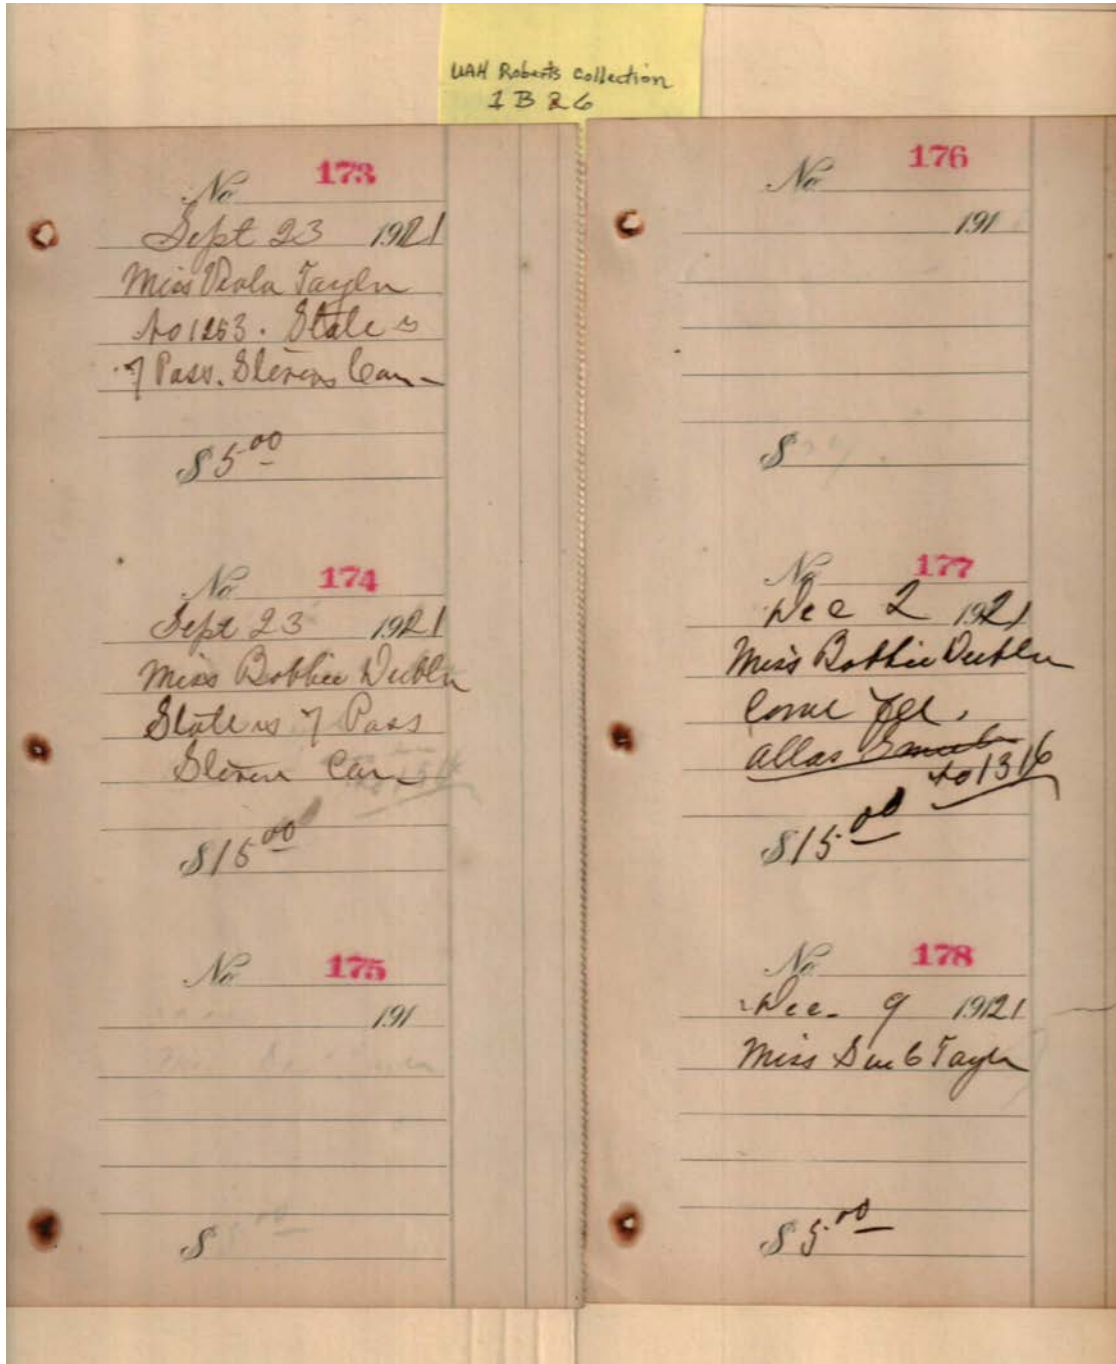 UAH Roberts Collection
1 B 26
No 173
Sept 23 1921
Miss Viola Taylor
No 1263. State vs
7 Pass. Stevens Car
$5.00
No 174
Sept 23 1921
Miss Bobbie
State vs 7 Pass
Steven Car
$15.00
No 175
191
$
No 176
191
$
No 177
Dec 2 1921
Miss Bobbie
$15.00
No 1316
No 178
Dec. 9 1921
Miss Taylor
$5.00